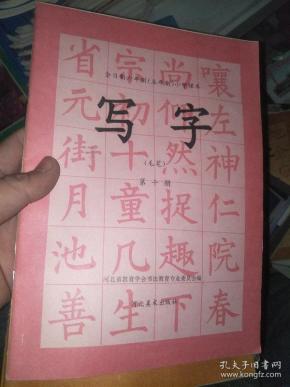 全日制六年制(五年制)小学课本
写字
(毛笔)
第十册
河北省教育学会书法教育专业委员会编
河北美术出版社
省宗尚嚷
元初似左
街十然神
月童捉仁
池几趣院
善生下春
孔夫子旧书网